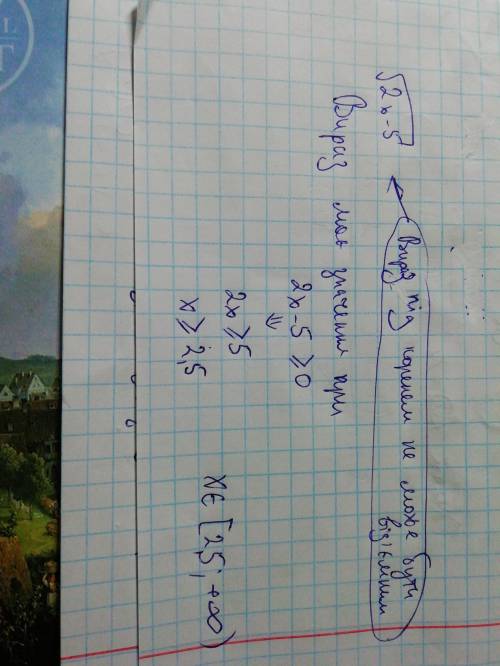 √2x-5
Вираз під коренем не може бути
від'ємним
Вираз має значення при
2x-5 ≥ 0
⇓
2x ≥ 5
x ≥ 2,5
x∈ [2,5; +∞)